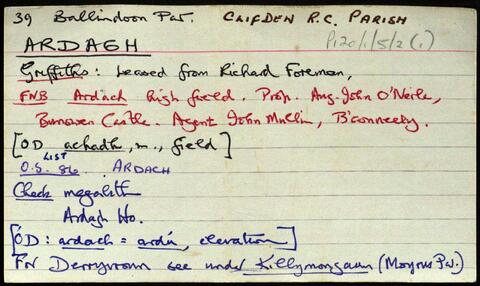 39 Ballindoon Par. CLIFDEN R.C. PARISH
P120/1/5/2 (1)
ARDAGH
Griffiths: Leased from Richard Foreman,
FNB Ardach high field. Prop. Aug. John O'Neile,
Bunowen Castle. Agent John Mullin, B'conneely.
[OD achadh, m., field]
O.S. LIST 86 ARDACH
Check megalith
Ardagh Ho.
[ÓD: ardach = ardán, elevation]
For Derryvroun see under Killymongaun (Moyrus Par.)